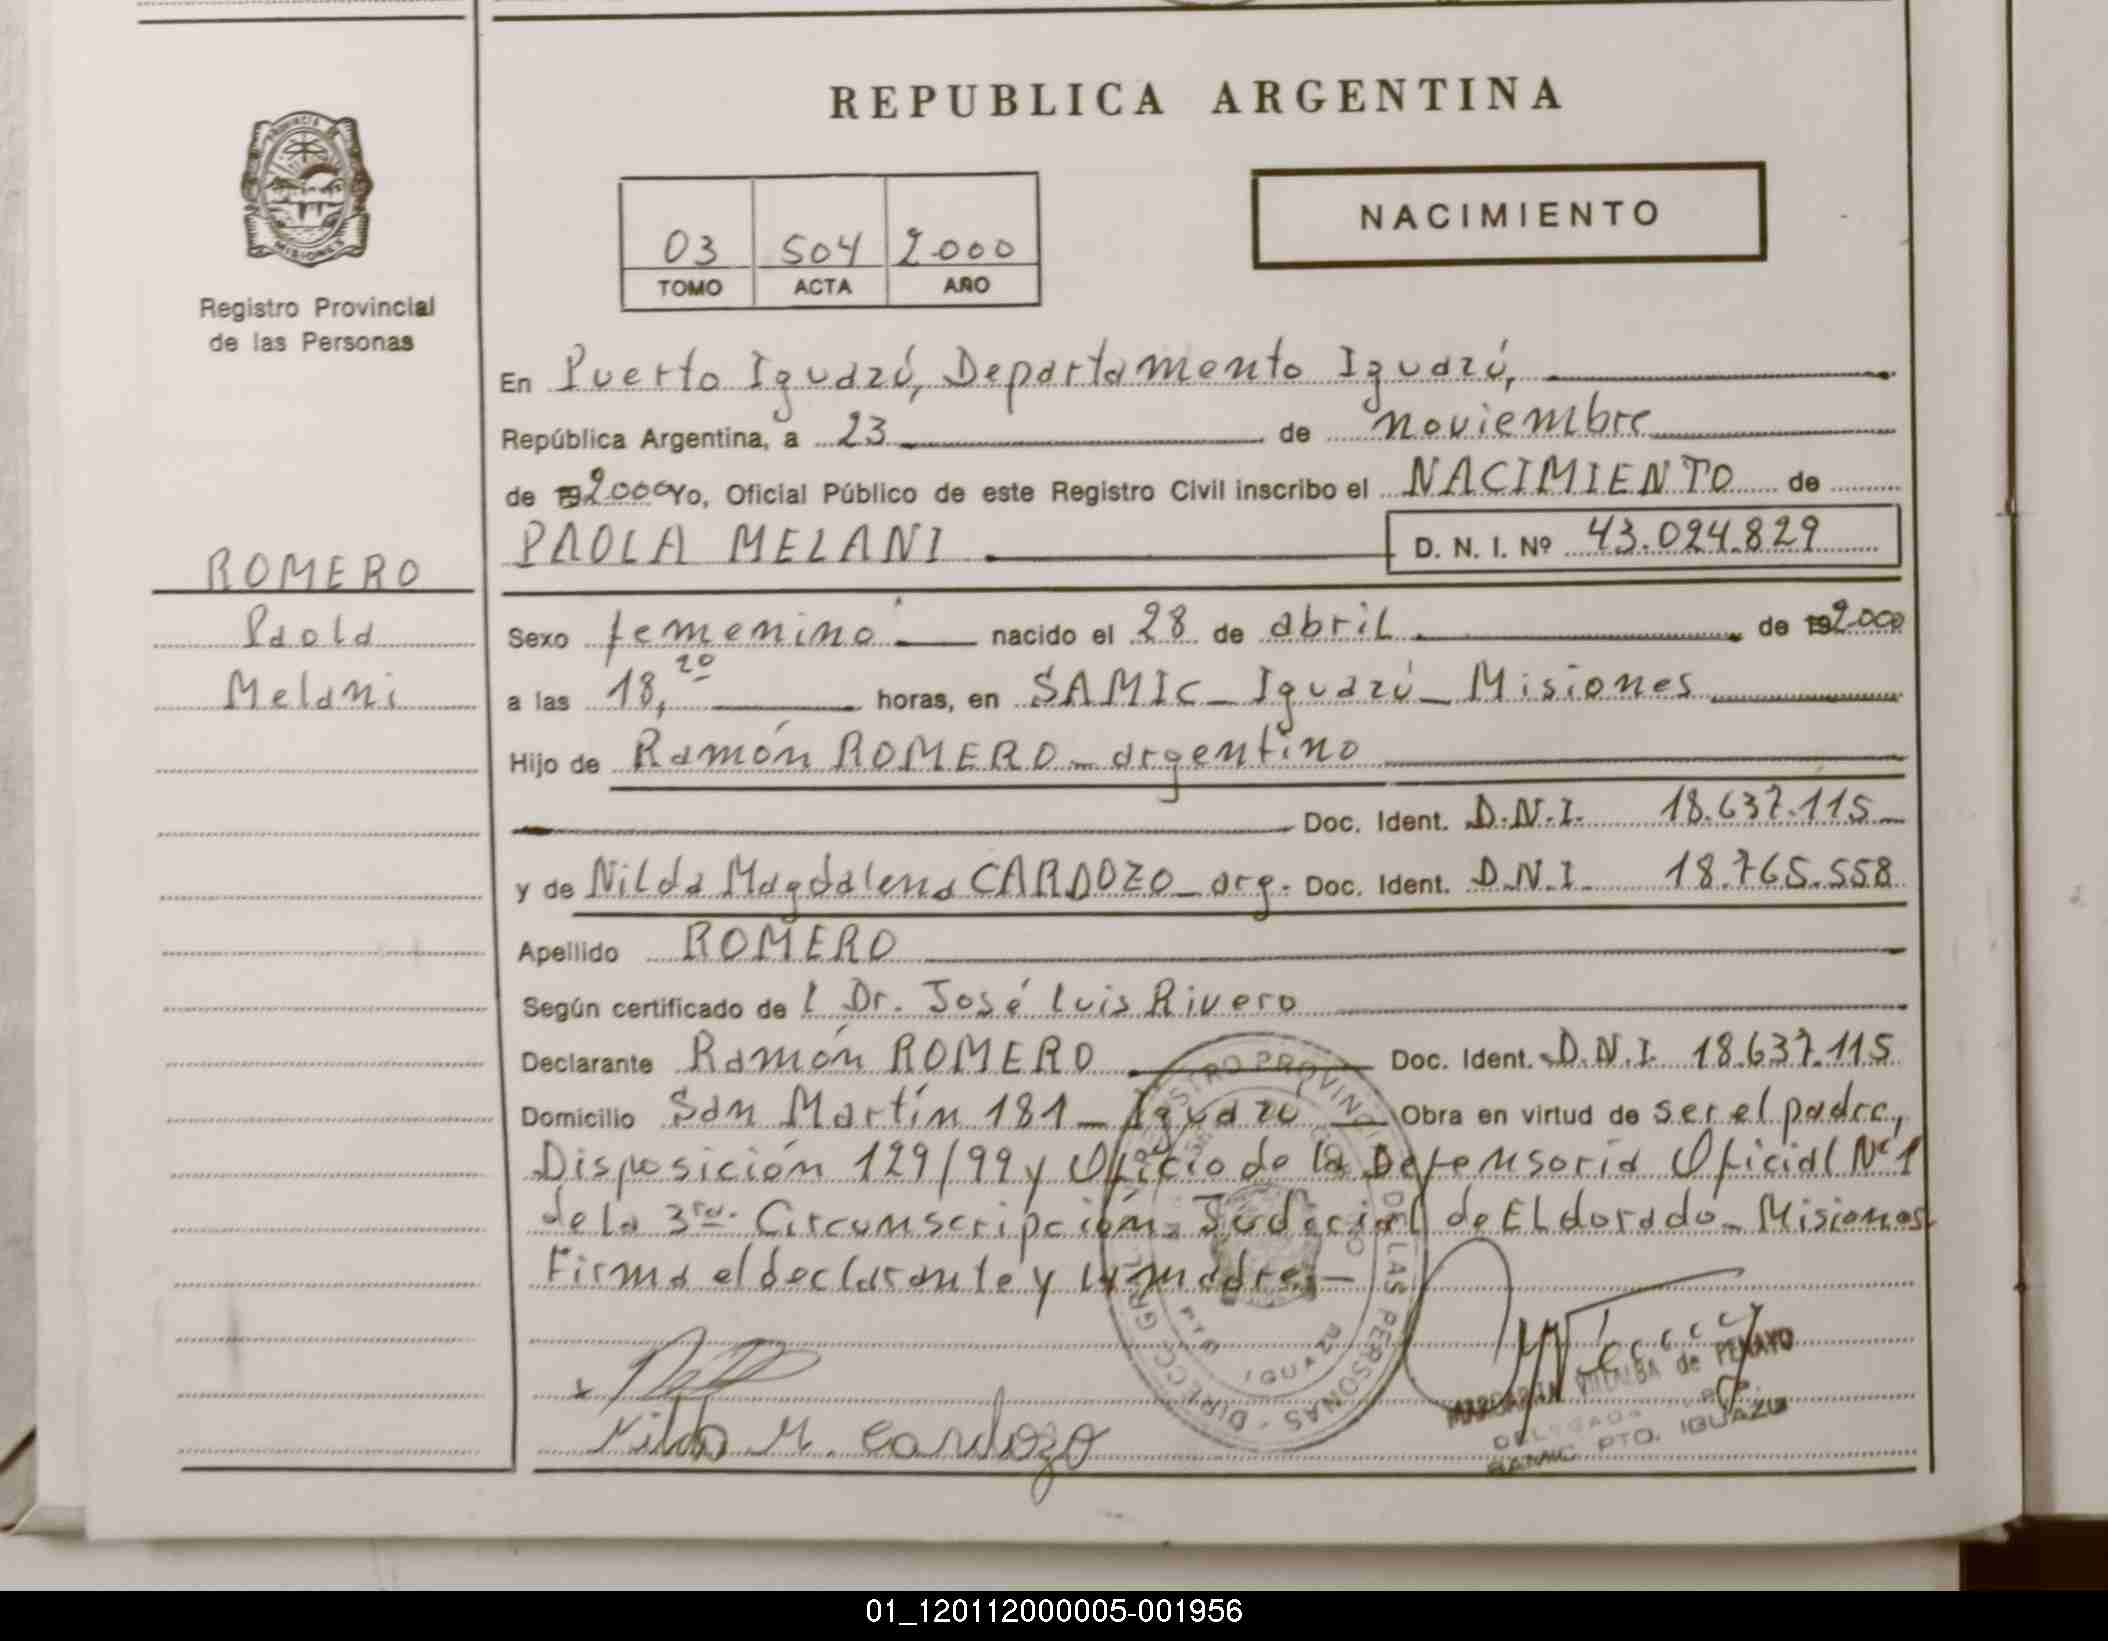 REPUBLICA ARGENTINA
PROVINCIA DE
MISIONES
Registro Provincial
de las Personas
NACIMIENTO
03 504 2000
TOMO ACTA AÑO
En Puerto Iguazú, Departamento Iguazú,
República Argentina, a 23 de noviembre
de 192000 Yo, Oficial Público de este Registro Civil inscribo el NACIMIENTO de
PAOLA MELANI D. N. I. Nº 43.024.829
ROMERO
Paola
Melani
Sexo femenino nacido el 28 de abril de 192000
a las 18,20 horas, en SAMIC_Iguazú_Misiones
Hijo de Ramón ROMERO_argentino
Doc. Ident. D.N.I. 18.637.115
y de Nilda Magdalena CARDOZO_arg. Doc. Ident. D.N.I. 18.765.558
Apellido ROMERO
Según certificado de l Dr. José Luis Rivero
Declarante Ramón ROMERO Doc. Ident. D.N.I. 18.637.115
Domicilio San Martín 181_Iguazú Obra en virtud de ser el padre,
Disposición 129/99 y Oficio de la Defensoria Oficial Nº1
de la 3ra. Circunscripción Judicial de Eldorado_Misiones
Firma el declarante y la madre.—
Nilda M. Cardozo
REGISTRO PROVINCIAL DE LAS PERSONAS - DIRECC. GRAL.
PTO IGUAZU
VILLALBA de PENAYO
DELEGADA
SAMIC PTO. IGUAZU
01_120112000005-001956